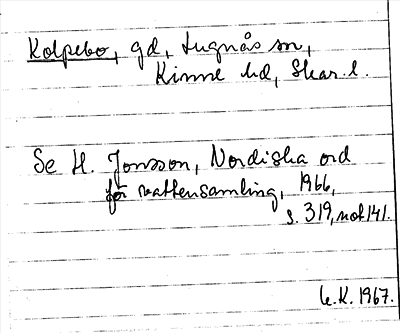 Kolpebo, gd, Lugnås sn,
Kinne hd, Skar. l.
Se H. Jonsson, Nordiska ord
för vattensamling, 1966,
s. 319, not 141.
G.K. 1967.